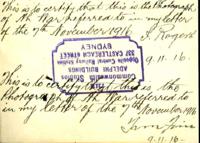 This is to certify that this is the Photograph
of Ah War referred to in my letter
of the 7th November 1916.
9.11.16.
THE
Commonwealth Studios
ADELPHI BUILDINGS
337 CASTLEREAGH STREET
Opposite Central Railway Station
SYDNEY
This is to certify that this is the
Photograph of Ah War referred to
in my letter of the 7th November 1916.
9.11.16.